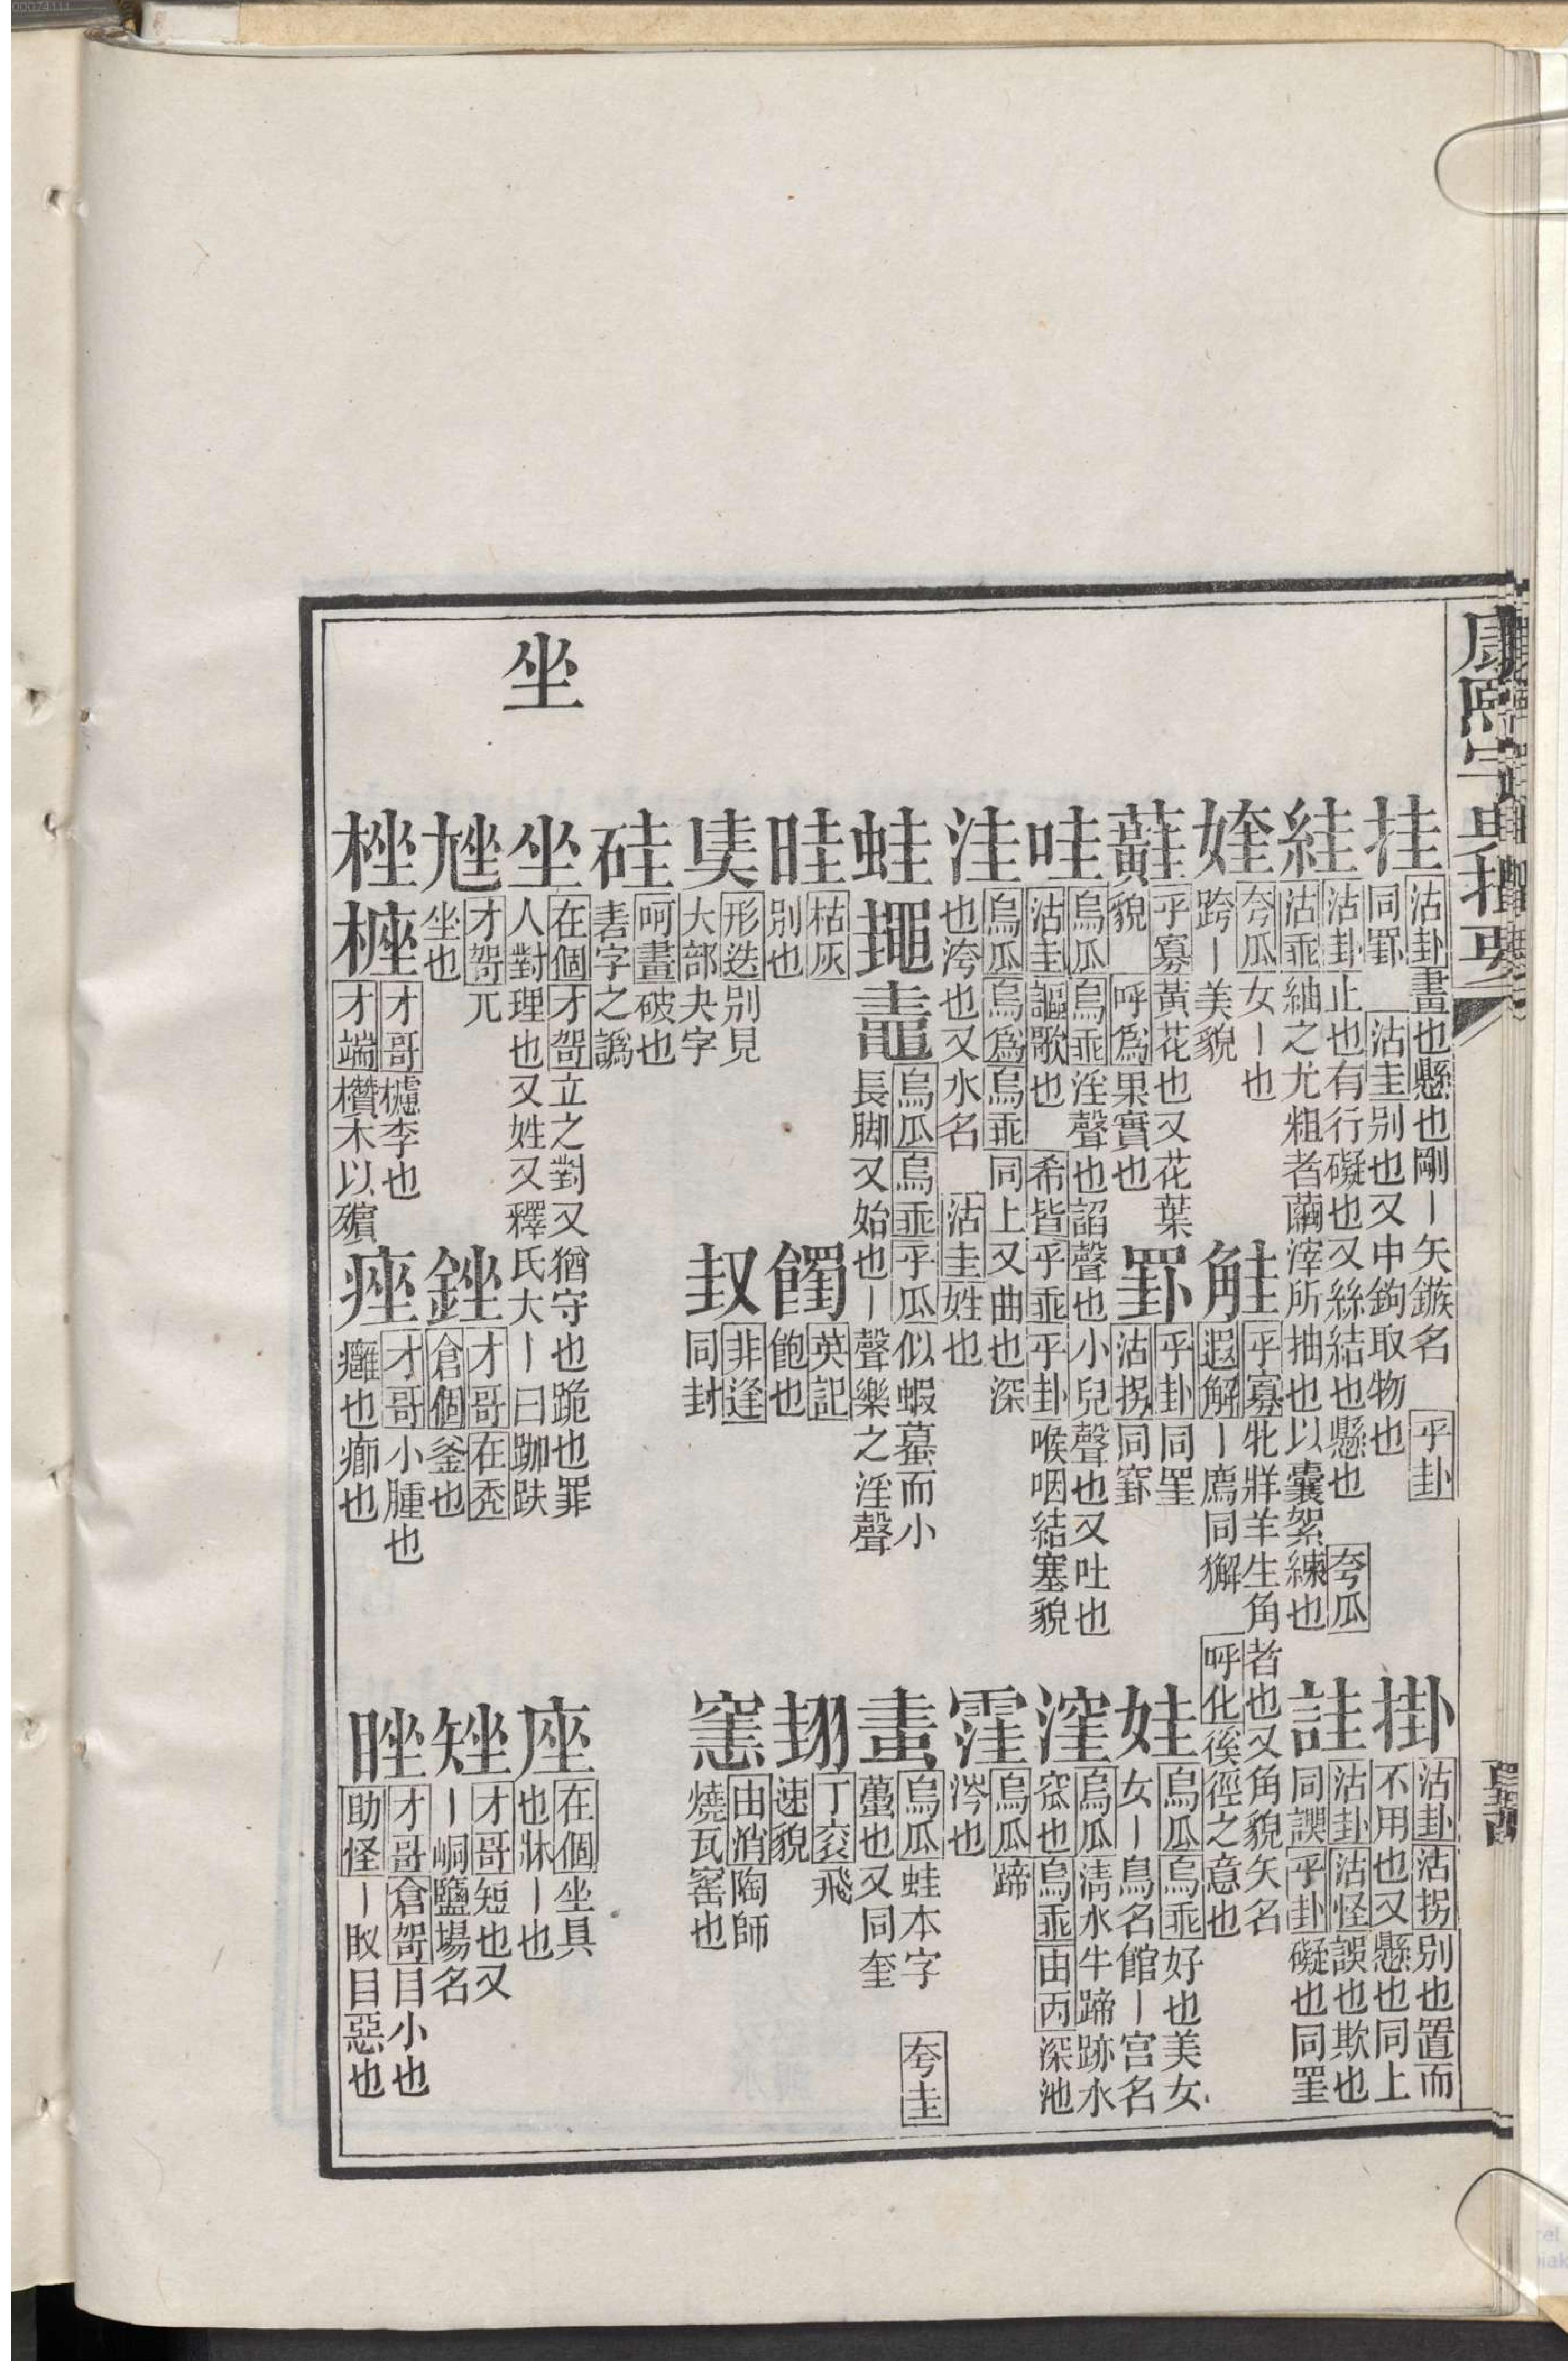 康熙字典撮要
挂 沽卦畫也懸也剛丨矢鏃名 乎卦同罫 沽圭別也又中鉤取物也
掛 沽卦沽拐別也置而不用也又懸也同上
絓 沽卦止也有行礙也又絲結也懸也 夸瓜沽乖紬之尤粗者繭滓所抽也以囊絮練也
詿 沽卦沽怪誤也欺也同諜乎卦礙也同罣
㛻 夸瓜女丨也跨丨美貌
觟 乎寡牝牂羊生角者也又角貌矢名遐解丨廌同獬 呼化後徑之意也
蘳 乎寡黃花也又花葉貌 呼爲果實也
罫 乎卦同罣沽拐同罫
娃 烏瓜烏乖好也美女女丨鳥名館丨宮名
哇 烏瓜烏乖淫聲也謟聲也小兒聲也又吐也沽圭謳歌也 希皆乎乖乎卦喉咽結塞貌
漥 烏瓜淸水牛蹄跡水窊也烏乖由丙深池
洼 烏瓜烏爲烏乖同上又曲也深也洿也又水名 沽圭姓也
窪 烏瓜蹄涔也
蛙 䵷 鼃 烏瓜烏乖乎瓜似蝦蟇而小長脚又始也丨聲樂之淫聲
畫 烏瓜蛙本字 夸圭蠆也又同奎
畦 枯灰別也
饂 英記飽也
翃 丁衮飛速貌
奊 形迭別見大部夬字
㚳 非逢同封
窯 由消陶師燒瓦窰也
硅 呵畫破也砉字之譌
坐
坐 在個才哿立之對又猶守也跪也罪人對理也又姓又釋氏大丨曰跏趺
座 在個坐具也牀丨也
𡯨 才哿兀坐也
銼 才哥在禿倉個釜也
矬 才哥短也又丨峒鹽場名
桽 㯌 才哥櫨李也才端欑木以殯
痤 才哥小腫也癰也癤也
睉 才哥倉哿目小也助怪丨䀏目惡也